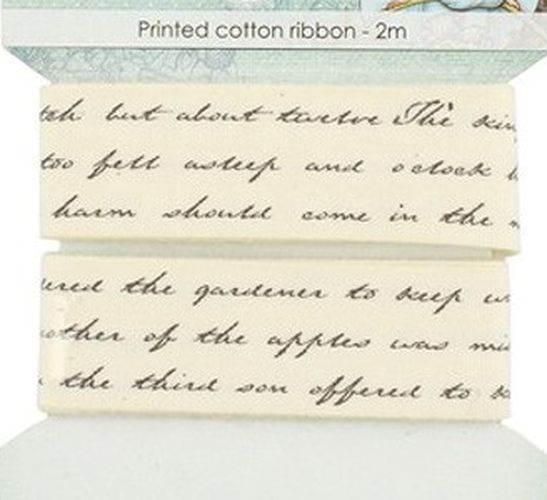 Printed cotton ribbon - 2m
tch but about twelve The kin
too fell asleep and o'clock
harm should come in the
ered the gardener to keep w
nother of the apples was mis
the third son offered to